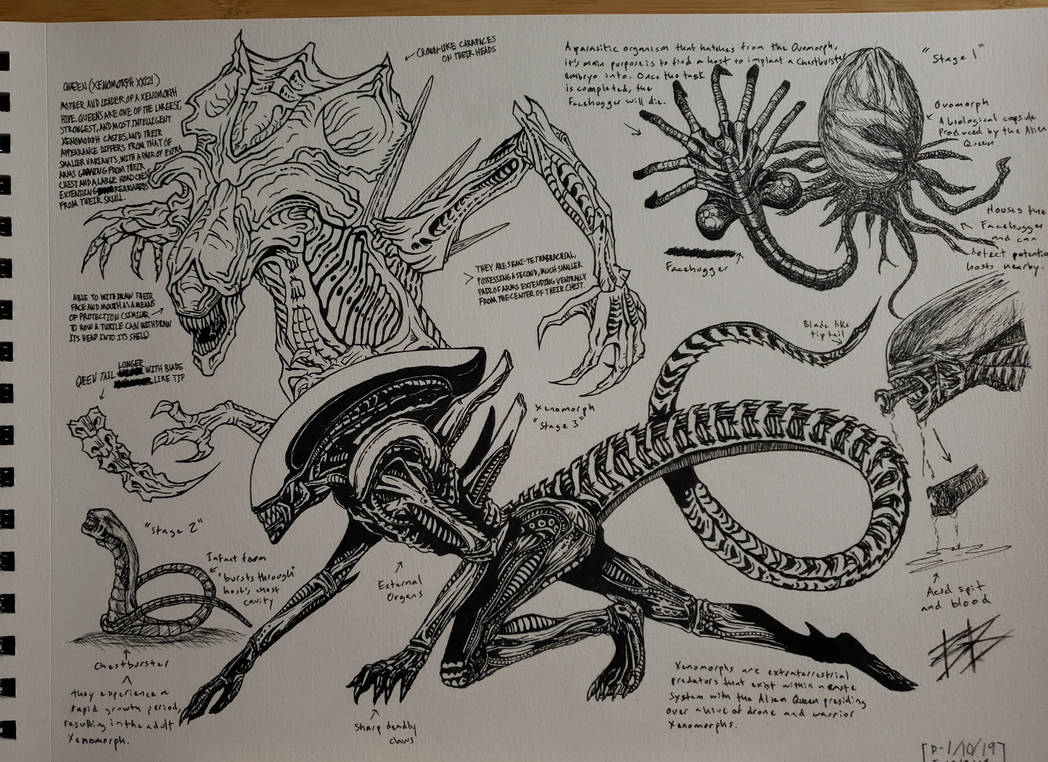 QUEEN (XENOMORPH XX121)
MOTHER AND LEADER OF A XENOMORPH
HIVE. QUEENS ARE ONE OF THE LARGEST,
STRONGEST, AND MOST INTELLIGENT
XENOMORPH CASTES, AND THEIR
APPEARANCE DIFFERS FROM THAT OF
SMALLER VARIANTS, WITH A PAIR OF EXTRA
ARMS GROWING FROM THEIR
CHEST AND A LARGE HEAD CREST
EXTENDING REARWARDS
FROM THEIR SKULL.
CROWN-LIKE CARAPACES
ON THEIR HEADS
A parasitic organism that hatches from the Ovamorph,
it's main purpose is to find a host to implant a Chestburster
embryo into. Once the task
is completed, the
Facehugger will die.
"Stage 1"
Ovamorph
A biological capsule
Produced by the Alien
Queen.
Houses the
Facehugger
and can
detect potential
hosts nearby.
Facehugger
THEY ARE SEMI-TETRABRACHIAL,
POSSESSING A SECOND, MUCH SMALLER
PAIR OF ARMS EXTENDING VENTRALLY
FROM THE CENTER OF THEIR CHEST.
ABLE TO WITHDRAW THEIR
FACE AND MOUTH AS A MEANS
OF PROTECTION (SIMILAR
TO HOW A TURTLE CAN WITHDRAW
ITS HEAD INTO ITS SHELL)
QUEEN TAIL LONGER WITH BLADE
LIKE TIP
Blade like
tip tail
Xenomorph
"Stage 3"
"Stage 2"
Infant form
"bursts through"
host's chest
cavity
External
Organs
Acid spit
and blood
Chestburster
they experience a
rapid growth period,
resulting in the adult
Xenomorph.
Sharp deadly
claws
Xenomorphs are extraterrestrial
predators that exist within a caste
System with the Alien Queen presiding
over a hive of drone and warrior
Xenomorphs.
[D-1/10/19]